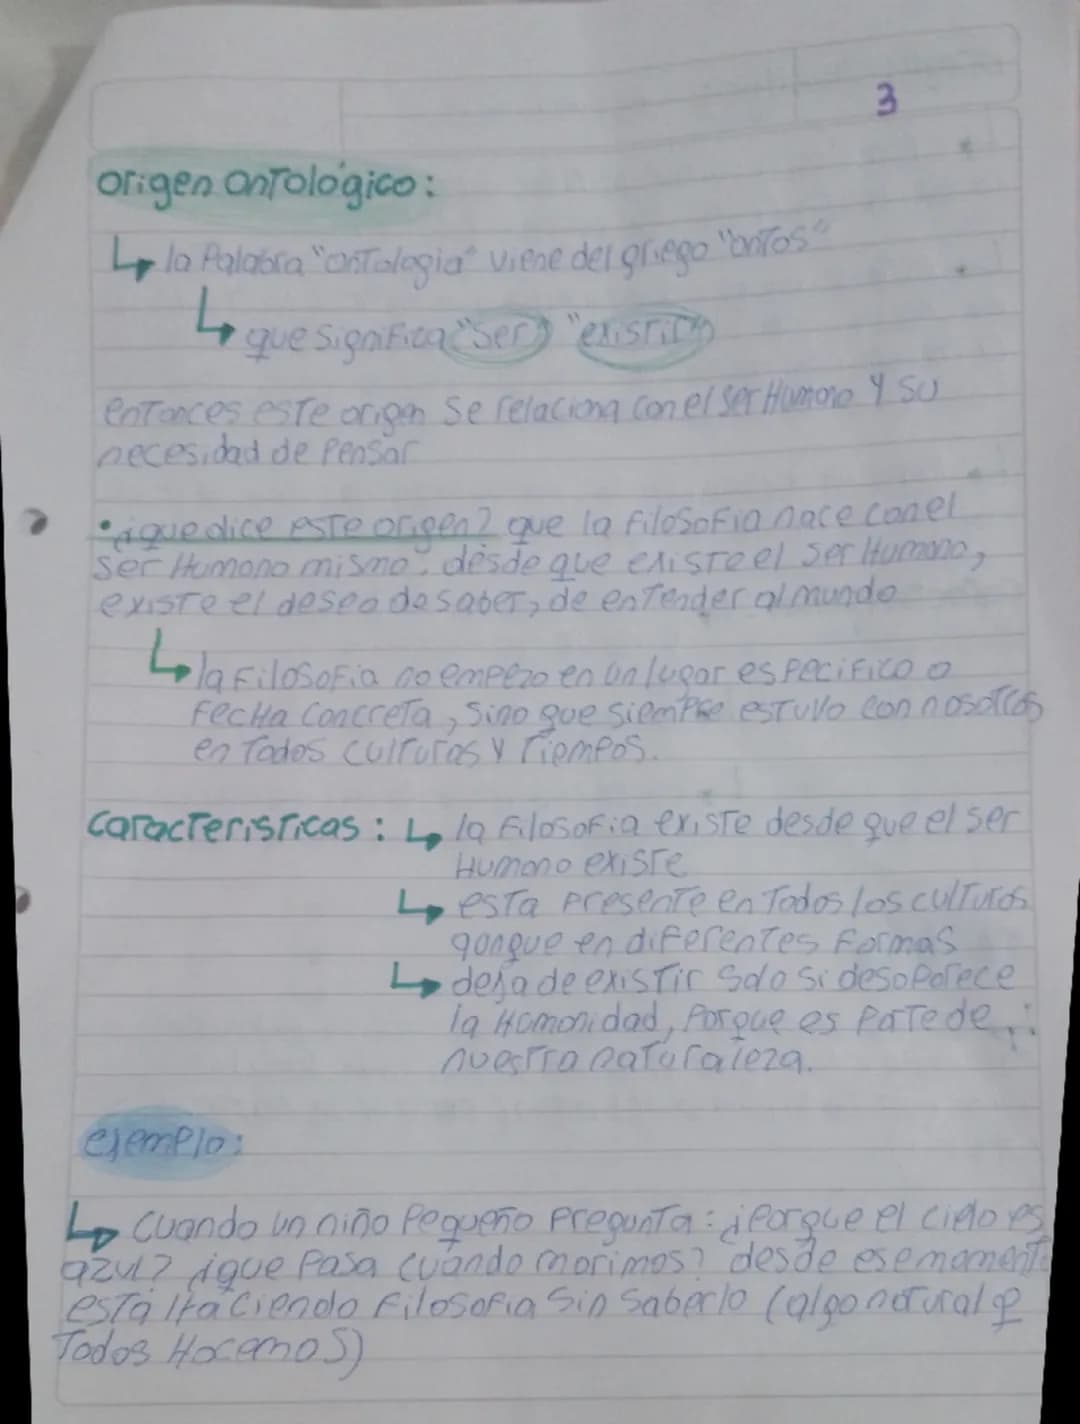 3
origen ontológico:
↳ la Palabra "ontologia" viene del griego "ontos"
↳ que significa "ser" "existir"
entonces este origen se relaciona con el ser Humano y su
necesidad de Pensar
• ¿que dice este origen? que la filosofia nace con el
ser Humano mismo. desde que existe el ser Humano,
existe el deseo de saber, de entender al mundo
↳ la Filosofia no empezo en un lugar especifico o
fecha concreta, sino que siempre estuvo con nosotros
en Todas culturas y Tiempos.
Caracteristicas: ↳ la Filosofia existe desde que el ser
Humano existe
↳ esta presente en Todas las culturas
aunque en diferentes Formas
↳ deja de existir solo si desaparece
la Humanidad, Porque es Parte de
nuestra naturaleza.
ejemplo:
↳ Cuando un niño Pequeño Pregunta: ¿Porque el cielo es
azul? ¿que Pasa cuando morimos? desde ese momento
está Haciendo Filosofia sin saberlo (algo natural q
Todos Hacemos)